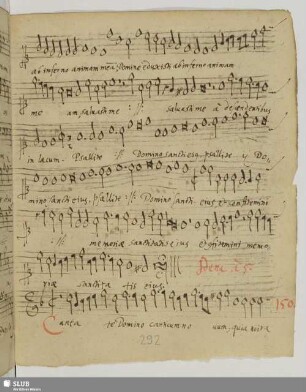 ab inferno animam meā: Domine eduxisti ab inferno animam
me am saluasti me :||: saluasti me à descendentibus
in lacum. Psallite :||: Domino sancti eius, psallite :||: Do,
mino sancti eius, psallite :||: Domino sancti eius et confitemini
:||: memoriæ sanctitatis eius et confitemini memo,
riæ sanctita tis eius.
Dec: a 5.
150.
Canta te Domino canticum no uum, quia mira
292
SLUB